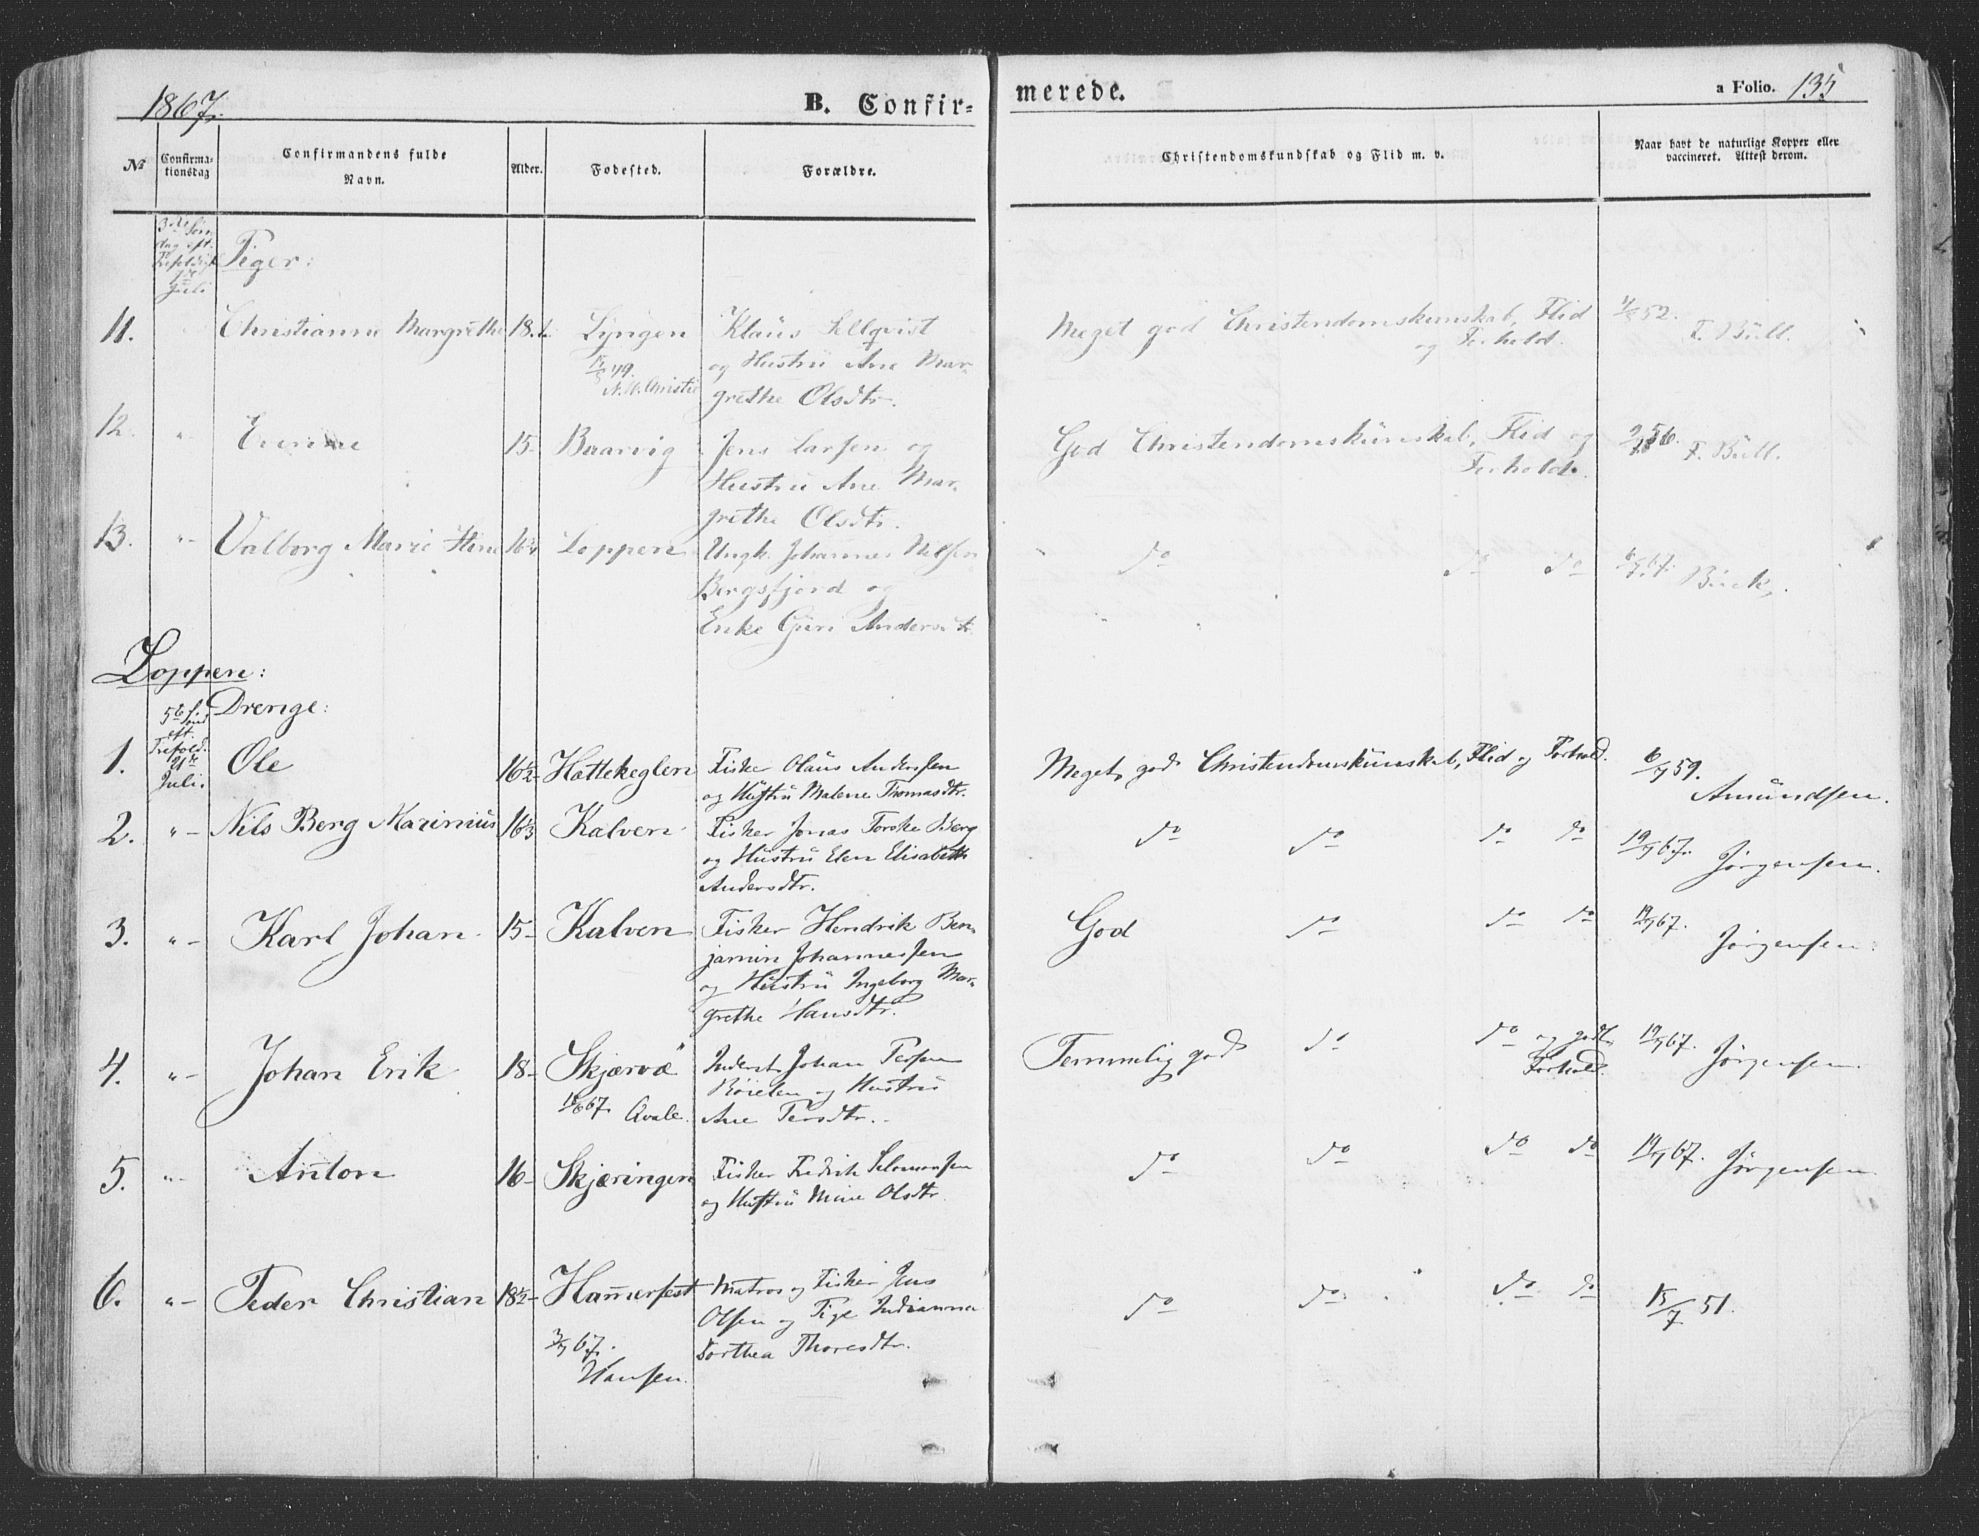 1867.
B. Confir-
merede.
a Folio. 135
No
Confirma-
tionsdag
Confirmandens fulde
Navn.
Alder.
Fødested.
Forældre.
Christendomskundskab og Flid m. v.
Naar havt de naturlige Kopper eller
vaccineret. Attest derom.
3die Søn
dag eft.
Trefoldigh
Juli
Piger:
11. Christianne Margrethe 18 Lyngen Klaus Sellqvist
og Hustru Ane Mar-
grethe Olsdtr.
49.
N. N. Christie
Meget god Christendomskunskab, Flid
og Forhold.
52. F. Büll.
12. " 15 Baarvig Jens Larsen og
Hustru Ane Mar-
grethe Olsdtr.
God Christendomskunskab, Flid og
Forhold.
56. F. Büll.
13. " Valborg Marie Stine 16 Loppen Ungk. Johannes Nilsen
Bergsfjord og
Enke Guri Andersdtr
do do do
67. Buck.
Loppen:
5te Sønd
eft.
Trefold.
21de
Juli.
Drenge:
1. Ole 16½ Hattekeglen Fisker Olaus Andersen
og Hustru Malene Thomasdtr.
Meget god Christendomskunskab, Flid og Forhold.
6/7 59.
Amundsen.
2. " Nils Berg Marinius 16⅓ Kalven Fisker Jonas Torske Berg
og Hustru Elen Elisabeth
Andersdtr.
do do do do
19/7 67. Jörgensen.
3. " Karl Johan 15 Kalven Fisker Hendrik Ben-
jamin Johannessen
og Hustru Ingeborg Mar-
grethe Hansdtr.
God do do do
19/7 67. Jörgensen.
4. " Johan Erik 18 Skjærvø Inderst Johan Persen
og Hustru
Ane Persdtr.
67. Qvale.
Temmelig god do do og godt
Forhold.
19/7 67. Jörgensen.
5. " Anton 16 Skjæringen Fisker Fredrik Salomonsen
og Hustru Olsdtr.
do do do do
19/7 67. Jörgensen
6. " Peder Christian 18½ Hammerfest Matros og Fisker Jens
Olsen og Pige Indianna
Dorthea Thoresdtr.
67.
Hansen.
do do do do
15/7 51.